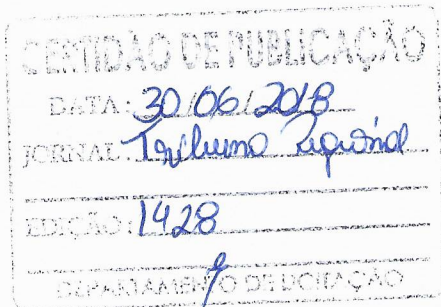 CERTIDÃO DE PUBLICAÇÃO
DATA: 30/06/2018
JORNAL: Tribuna Regional
EDIÇÃO: 1428
DEPARTAMENTO DE LICITAÇÃO